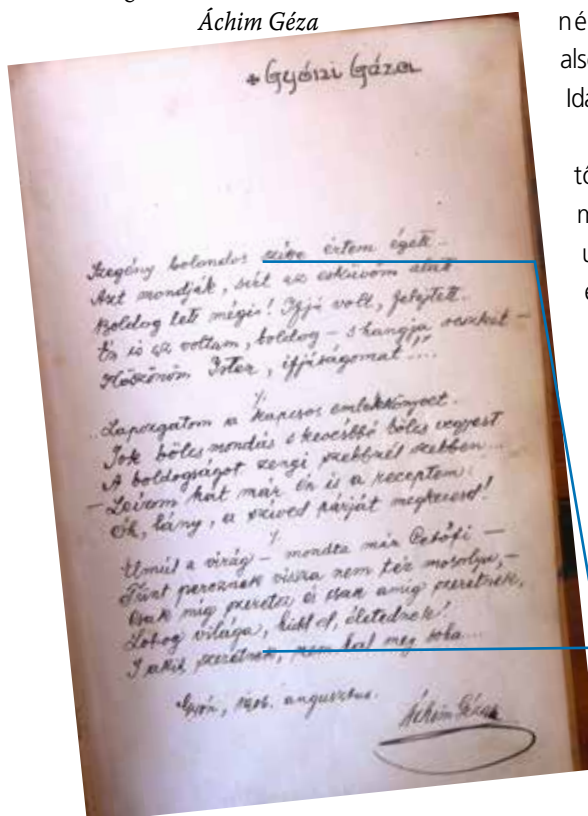 Áchim Géza
né
als
lda
tő
n
u
e
+ Gyóni Géza
Szegény bolondos szíve értem égett...
Azt mondják, sírt az esküvőm alatt
Boldog lett mégis! Ifjú volt, felejtett.
Én is az voltam, boldog – s hangja reszket –
Köszönöm Isten, ifjúságomat"....
Lapozgatom a kapcsos emlékkönyvet.
Sok bölcs mondás s kevésbbé bölcs vegyest
A boldogságot zengi szebbnél szebben...
– Leírom hát már én is a receptem:
Ók, lány, a szíved párját megkeresd!
Elmúl a virág – mondta már Petőfi –
Tünt perceznek vissza nem tér mosolya, –
Csak míg szeretsz és csak amíg szeretnek,
Lobog világa, hidd el, életednek!
S akit szeretnek, nem hal meg soha...
Gyón, augusztus.
Áchim Géza